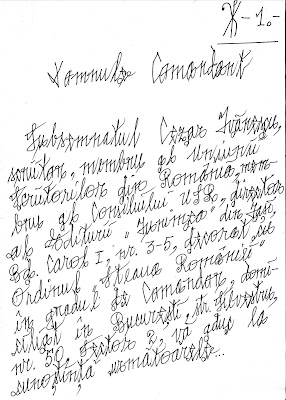 Ж - 1.-
Domnule Comandant
Subsemnatul Cezar Ivănescu,
scriitor, membru al Uniunii
Scriitorilor din România, mem-
bru al Consiliului USR, director
al Editurii "Junimea" din Iași,
Bd. Carol I, nr. 3-5, decorat cu
Ordinul "Steaua României"
în gradul de Comandor, domi-
ciliat în București, str.
nr. 50, sector 2, vă aduc la
cunoștință următoarele...